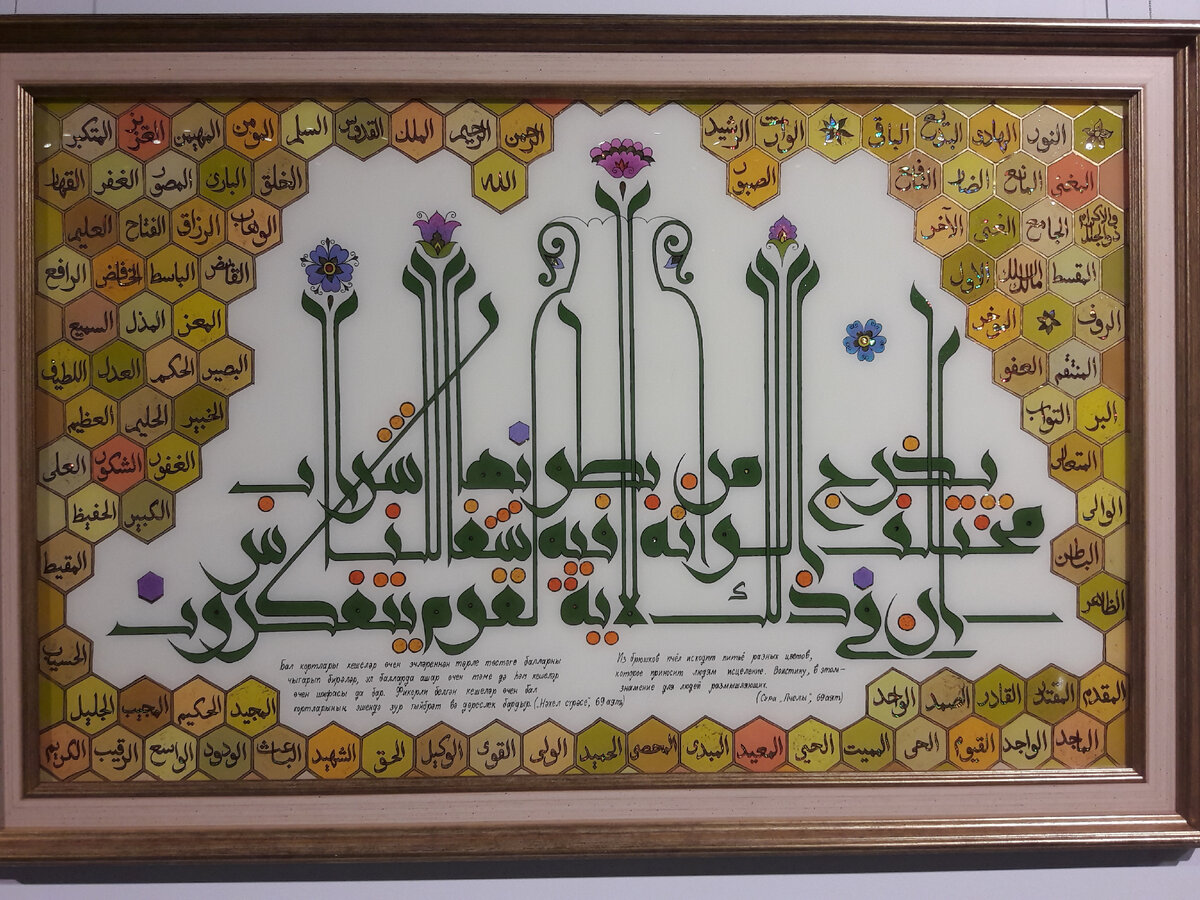 الله
الرحمن الرحيم الملك القدوس السلم المومن المهيمن العزيز المتكبر
الخلق البارئ المصور الغفر القهار
الوهاب الرزاق الفتاح العليم
القابض الباسط الخافض الرافع
المعز المذل السميع
البصير الحكم العدل اللطيف
الخبير الحليم العظيم
الغفور الشكور العلى
الكبير الحفيظ
المقيط
الحسيب
المجيد الحكيم المجيب الجليل
الماجد الواجد القيوم الحى المميت المحيي المعيد المبدئ المحصى الحميد الولى القوى الوكيل الحق الشهيد الباعث الودود الواسع الرقيب الكريم
المقدم المقتدر القادر الصمد الواحد
الظاهر
الباطن
الوالى
المتعالى
البر التواب
المنتقم العفو
الروف الموخر
المقسط مالك الملك الاول
ذو الجلال والاكرام الجامع الغنى الآخر
المغنى المانع الضار النافع
النور الهادى البديع الباقى الوارث الرشيد
الصبور
يخرج من بطونها شراب
مختلف الوانه فيه شفا للناس
ان فى ذلك لاية لقوم يتفكرون
Бал кортлары кешеләр өчен эчләреннән төрле төстәге балларны
чыгарып бирәләр, ул балларда ашар өчен тәме дә һәм кешеләр
өчен шифасы да бар. Фикерли белгән кешеләр өчен бал
кортларының эшендә зур гыйбрәт вә дәресләк бардыр. („Нәхел сүрәсе“, 69 аят)
Из брюшков пчёл исходит питьё разных цветов,
которое приносит людям исцеление. Воистину, в этом-
знамение для людей размышляющих.
(Сура „Пчелы“, 69 аят)